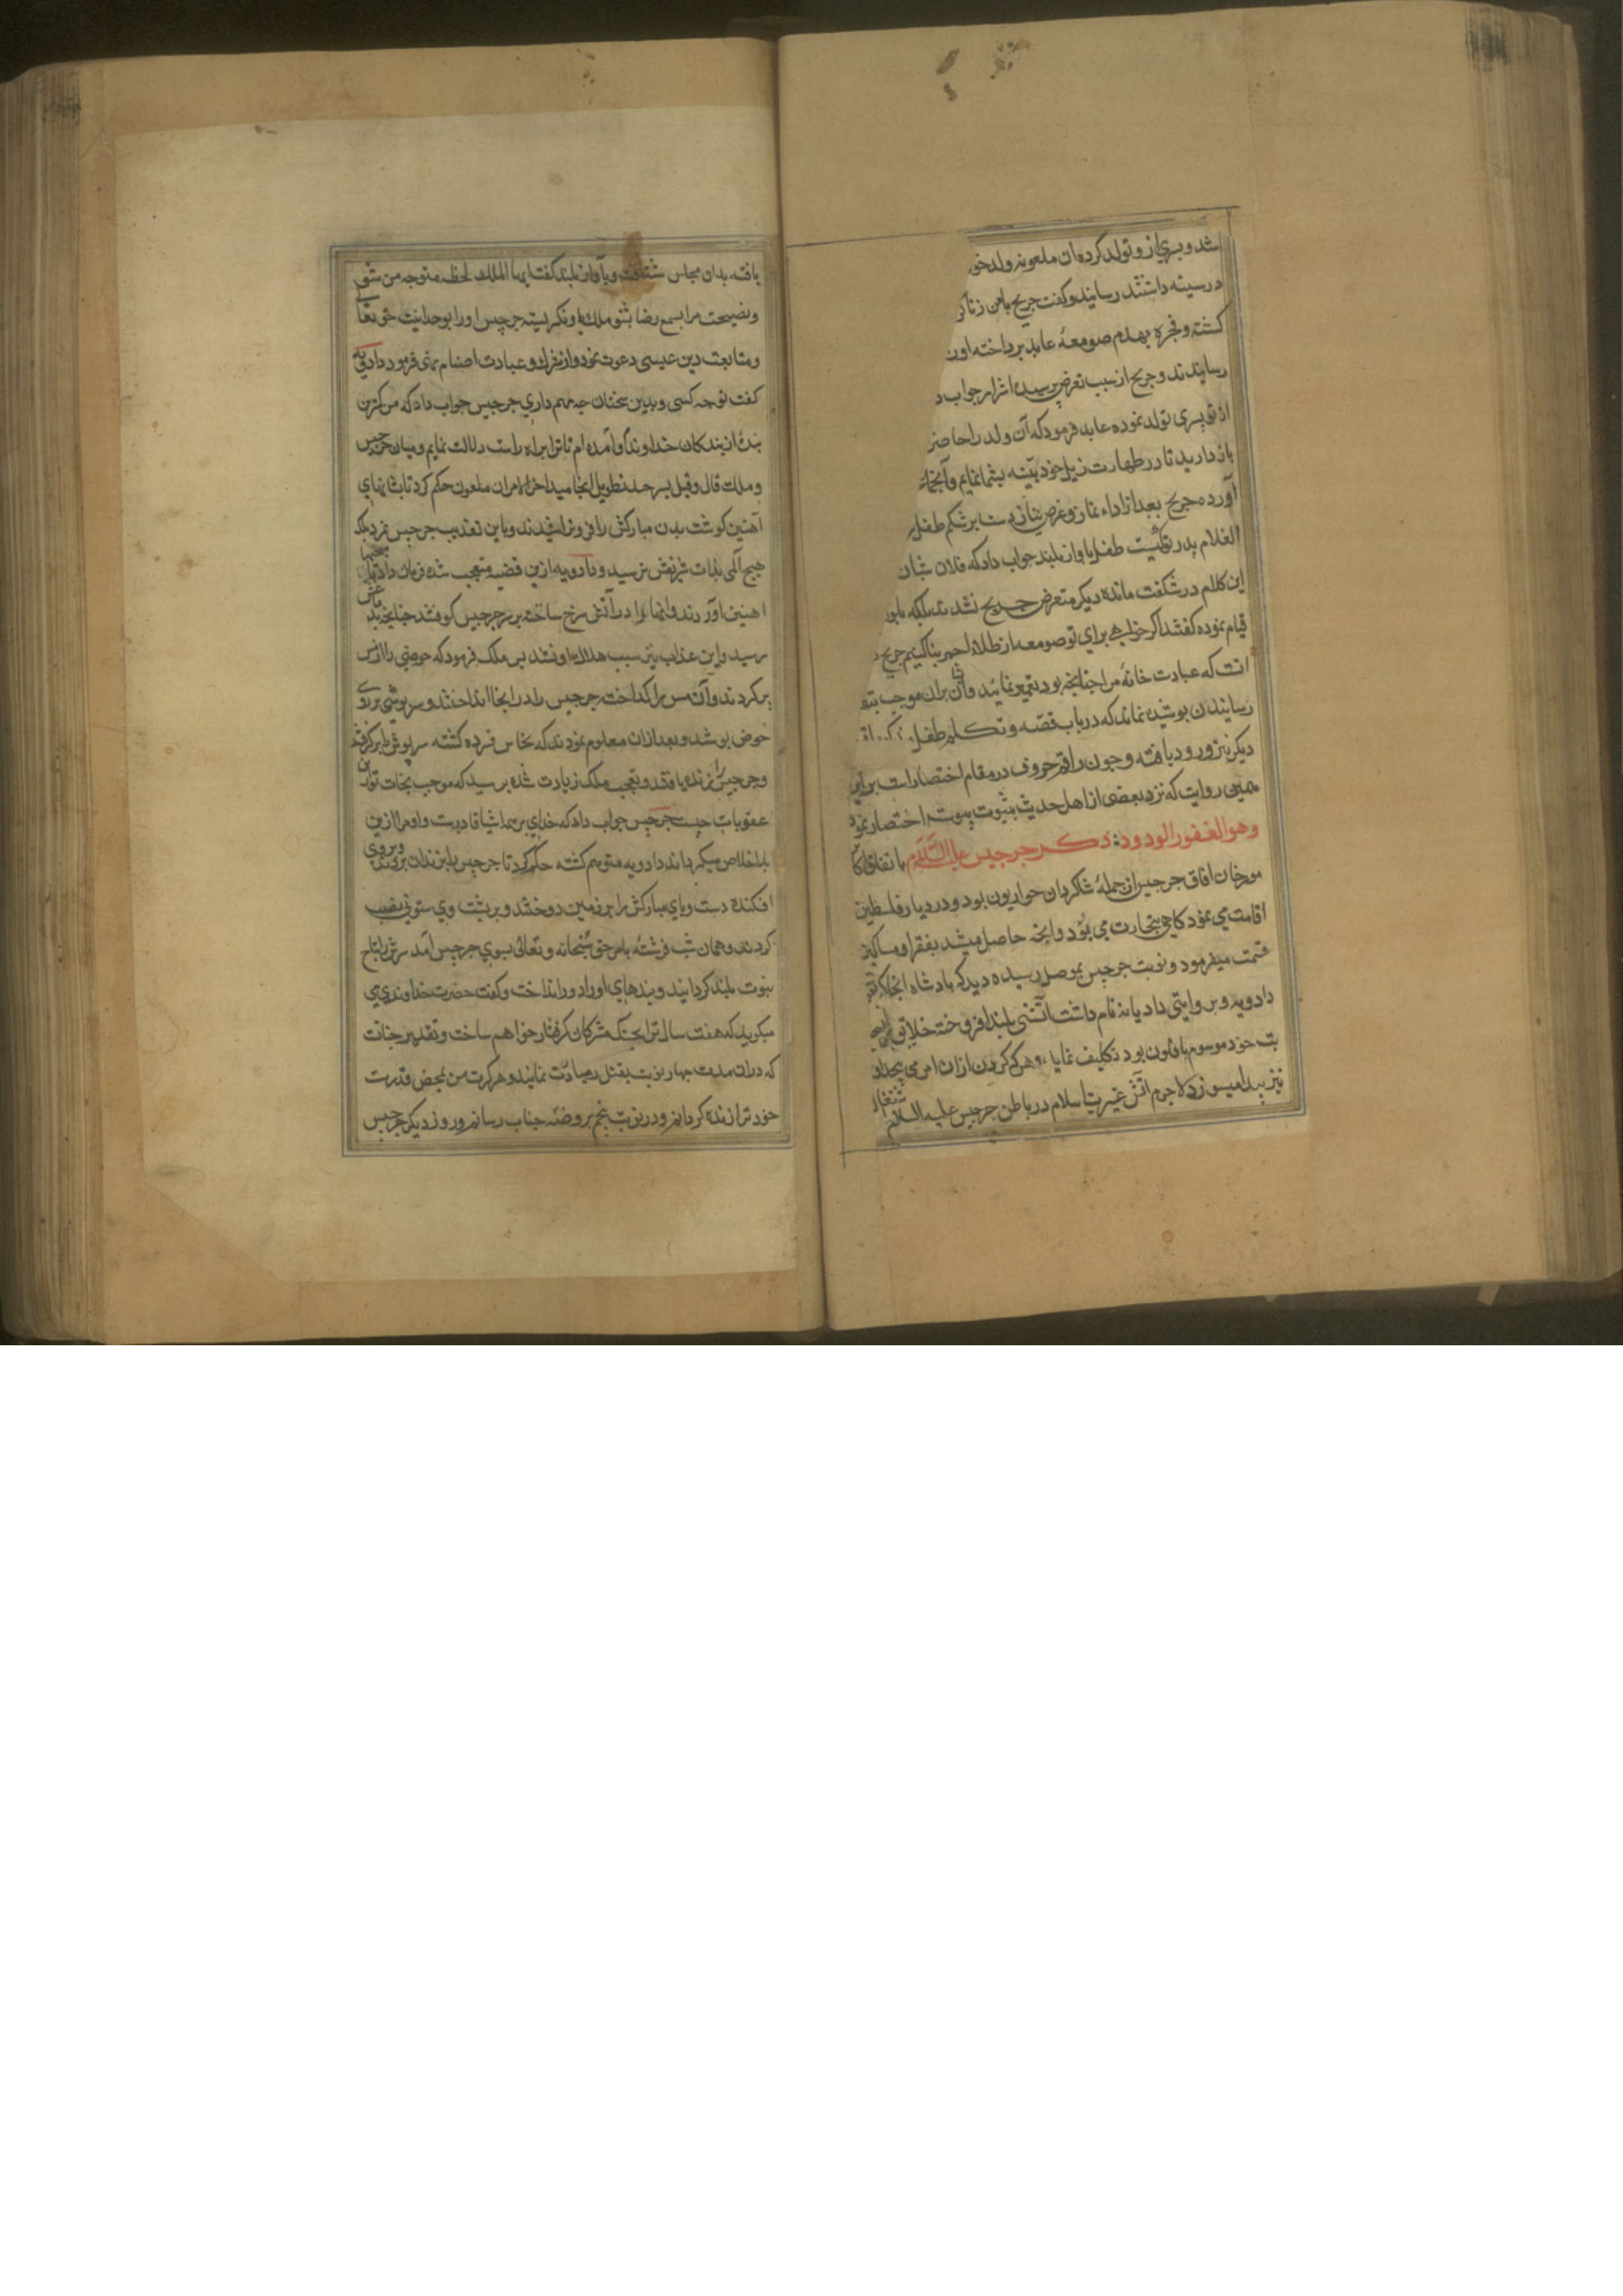 شد و پسری ازو تولد کرده ان ملعونه ولد خو
در سینه داشتند رسانید و کفت جریح بامن زنا کر
کشته و فجره بهدم صومعهٔ عابد پرداخته اورا
رسانیدند و جریح از سبب تعرض پرسیده اشرار جواب د
از تو پسری تولد نموده عابد فرمود که آن ولد را حاضر
باز دارید تا در طهارت ذیل خود بینه بشما نمایم و آنجا
آورده جریح بعد از اداء نماز و عرض نیاز دست بر شکم طفل
الغلام پدر تو کیست طفل باواز بلند جواب داد که فلان شبان
این کلام در شکفت مانده دیکر متعرض جریح نشدند بلکه
قیام نموده کفتند اکر خواهی برای تو صومعه از طلاء احمر بنا کنیم جریح
انست که عبادت خانهٔ مرا چنانچه بود تعمیر نمائید و آن بران موجب
رسانیدن پوشیده نماند که درباب قصه و تکلم طفل
دیکر نیز ورود یافته و چون راقم حروف در مقام اختصارات بر این
همین روایت که نزد بعضی از اهل حدیث بثبوت پیوسته اختصار نمود
وهو الغفور الودود ذکر جرجیس علیه السلام باتفاق
مورخان افاق جرجیس از جملهٔ شاکردان حواریون بود و در دیار فلسطین
اقامت می نمود کاهی بتجارت می نمود و انچه حاصل میشد بفقرا و مساکین
قسمت میفرمود و نوبت جرجیس بموصل رسیده دید که پادشاه انجا که
دادویه و بروایتی دادیانه نام داشت آتشی بلند افروخته خلایق
بت خود موسوم بافلون بود تکلیف نماید و هر که کردن ازان امر می پیچد
نیز میسوزد لاجرم آتش غیرت اسلام در باطن جرجیس علیه السلام
یافته بدان مجلس شتافت و بآواز بلند کفت ایها الملک لحظه متوجه من شو
و نصیحت مرا بسمع رضا بشنو ملک باو نکریسته جرجیس اورا بوحدانیت حق تعالی
و متابعت دین عیسی دعوت نمود و از شرک و عبادت اصنام نهی فرمود دادویه
کفت تو چه کسی و بدین سخنان چه مهم داری جرجیس جواب داد که من کمترین
بندهٔ از بندکان خداوندم و آمده ام تا ترا براه راست دلالت نمایم و میان جرجیس
و ملک قال و قیل بسر حد تطویل انجامید اخر الامران ملعون حکم کرد تا بشانهای
آهنین کوشت بدن مبارکش را فرو تراشیدند و باین تعذیب جرجیس نمرد بلکه
هیچ المی بذات شریفش نرسید و دادویه ازین قضیه متعجب شده فرمان داد تا میخهای
اهنین آوردند و انها را در آتش سرخ ساخته بر سر جرجیس کوفتند چنانچه بدماغش
رسید و این عذاب نیز سبب هلاک او نشد پس ملک فرمود که حوضی را از مس
پر کردند و آن مس را کداخت جرجیس را در انجا انداختند و سرپوشی بر روی
حوض پوشید و بعد ازان معلوم نمودند که نحاس فسرده کشته سرپوش را بر کرفتند
و جرجیس را زنده یافتند و تعجب ملک زیادت شده پرسید که موجب نجات تو ازین
عقوبات چیست جرجیس جواب داد که خدای بر همه اشیا قادرست و او مرا ازین
بلا خلاص میکرداند دادویه متوهم کشته حکم کرد تا جرجیس را بزندان بردند و بروی
افکنده دست و پای مبارکش را بر زمین دوختند و بر پشت وی ستونی نصب
کردند و همان شب فرشتهٔ بامر حق سبحانه و تعالی بسوی جرجیس آمد سرش را بتاج
نبوت بلند کردانید و بندهای اورا دور انداخت و کفت حضرت خداوندی می
میکوید که هفت سال ترا بچنک مشرکان کرفتار خواهم ساخت و تقدیر چنانست
که دران مدت چهار نوبت بقتل تو مبادرت نمایند و هر کرت من بمحض قدرت
خود ترا زنده کردانم و در نوبت پنجم بروضهٔ جنات رسانم و روز دیکر جرجیس